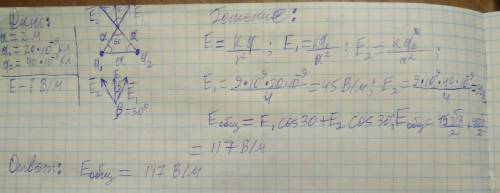 Дано:
a = 2 м
q₁ = 20·10⁻⁹ Кл
q₂ = 40·10⁻⁹ Кл
E - ? В/м
E₁
a
a
60
q₁
q₂
E₂
E
E₁
β = 30°
Решение:
E = kq/r² ; E₁ = kq₁/a² ; E₂ = kq₂/a² ;
E₁ = 9·10⁹·20·10⁻⁹/4 = 45 В/м ; E₂ = 9·10⁹·40·10⁻⁹/4 =
Eобщ = E₁ cos30 + E₂ cos30 ; Eобщ = 45√3/2 +
= 117 В/м
Ответ: Eобщ = 117 В/м